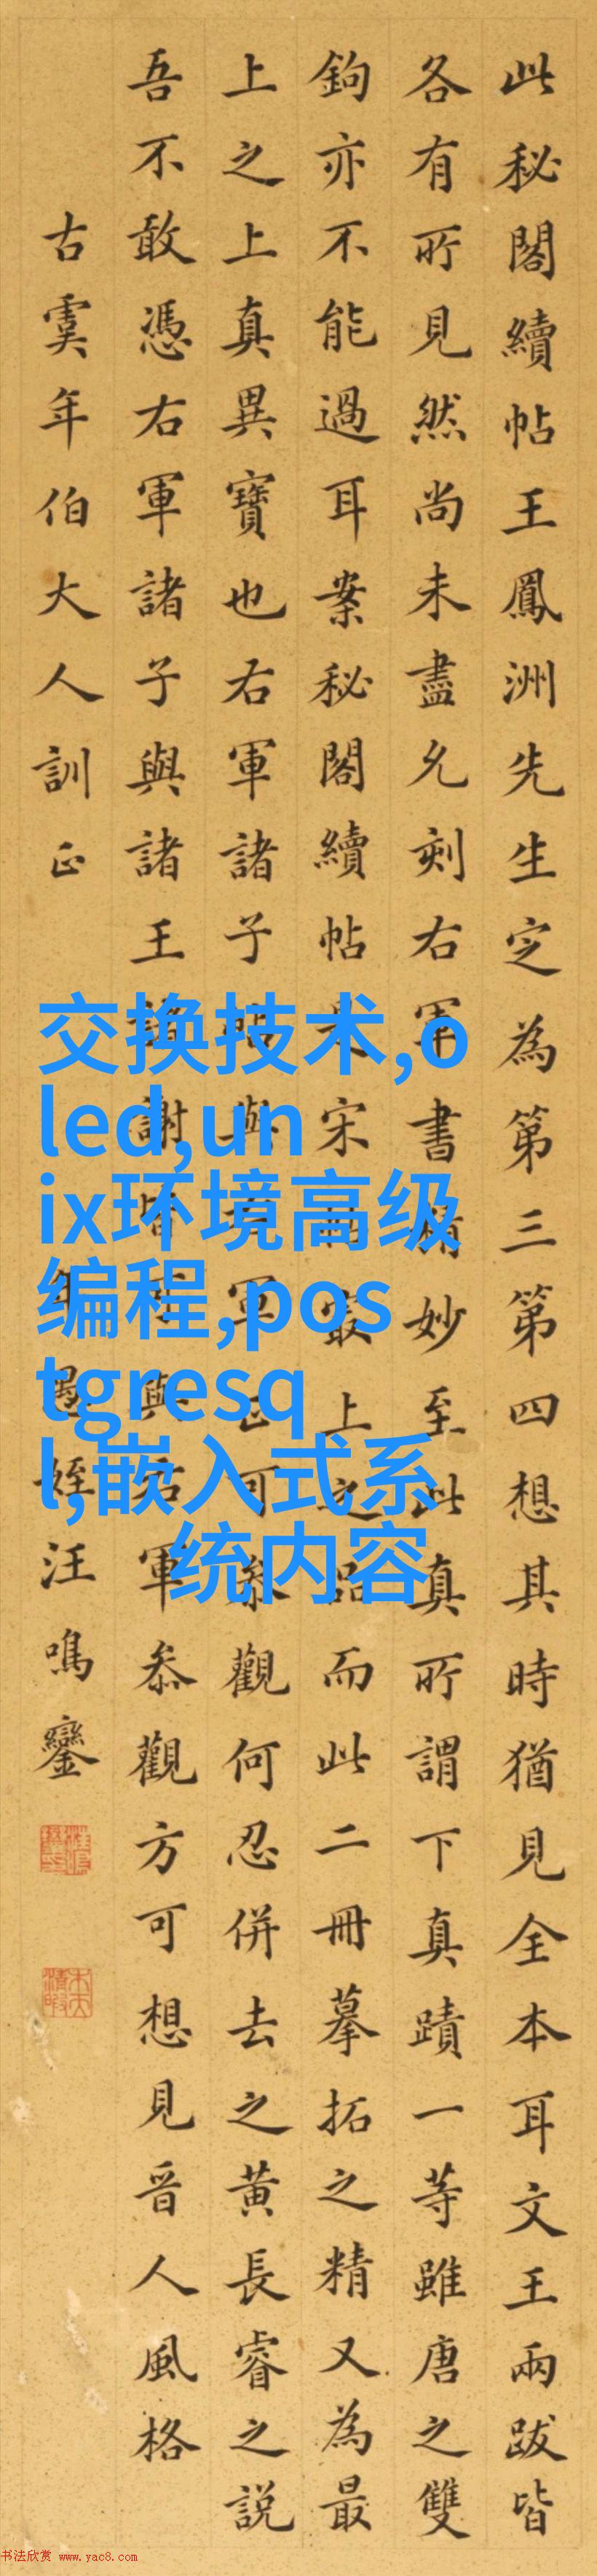 此秘閣續帖王鳳洲先生定為第三第四想其時猶見全本耳文王兩跋皆
各有所見然尚未盡允刻右軍書精妙至此真所謂下真蹟一等雖唐之雙
鉤亦不能過耳案秘閣續帖是宋最上之品而此二冊摹拓之精又為最
上之上真異寶也右軍諸子與軍正可參觀何忍併去之黃長睿之說
吾不敢憑右軍諸子與諸王諸謝皆可與右軍參觀方可想見晉人風格
古虞年伯大人訓正 年愚姪汪鳴鑾
交换技术,o
led,un
ix环境高级
编程,pos
tgresq
l,嵌入式系
统内容
书法欣赏 www.yac8.com